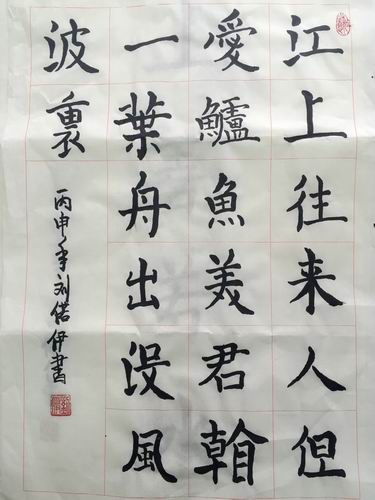 江上往来人但
愛鱸魚美君
一葉舟出没風
波裏
丙申年刘偌伊書